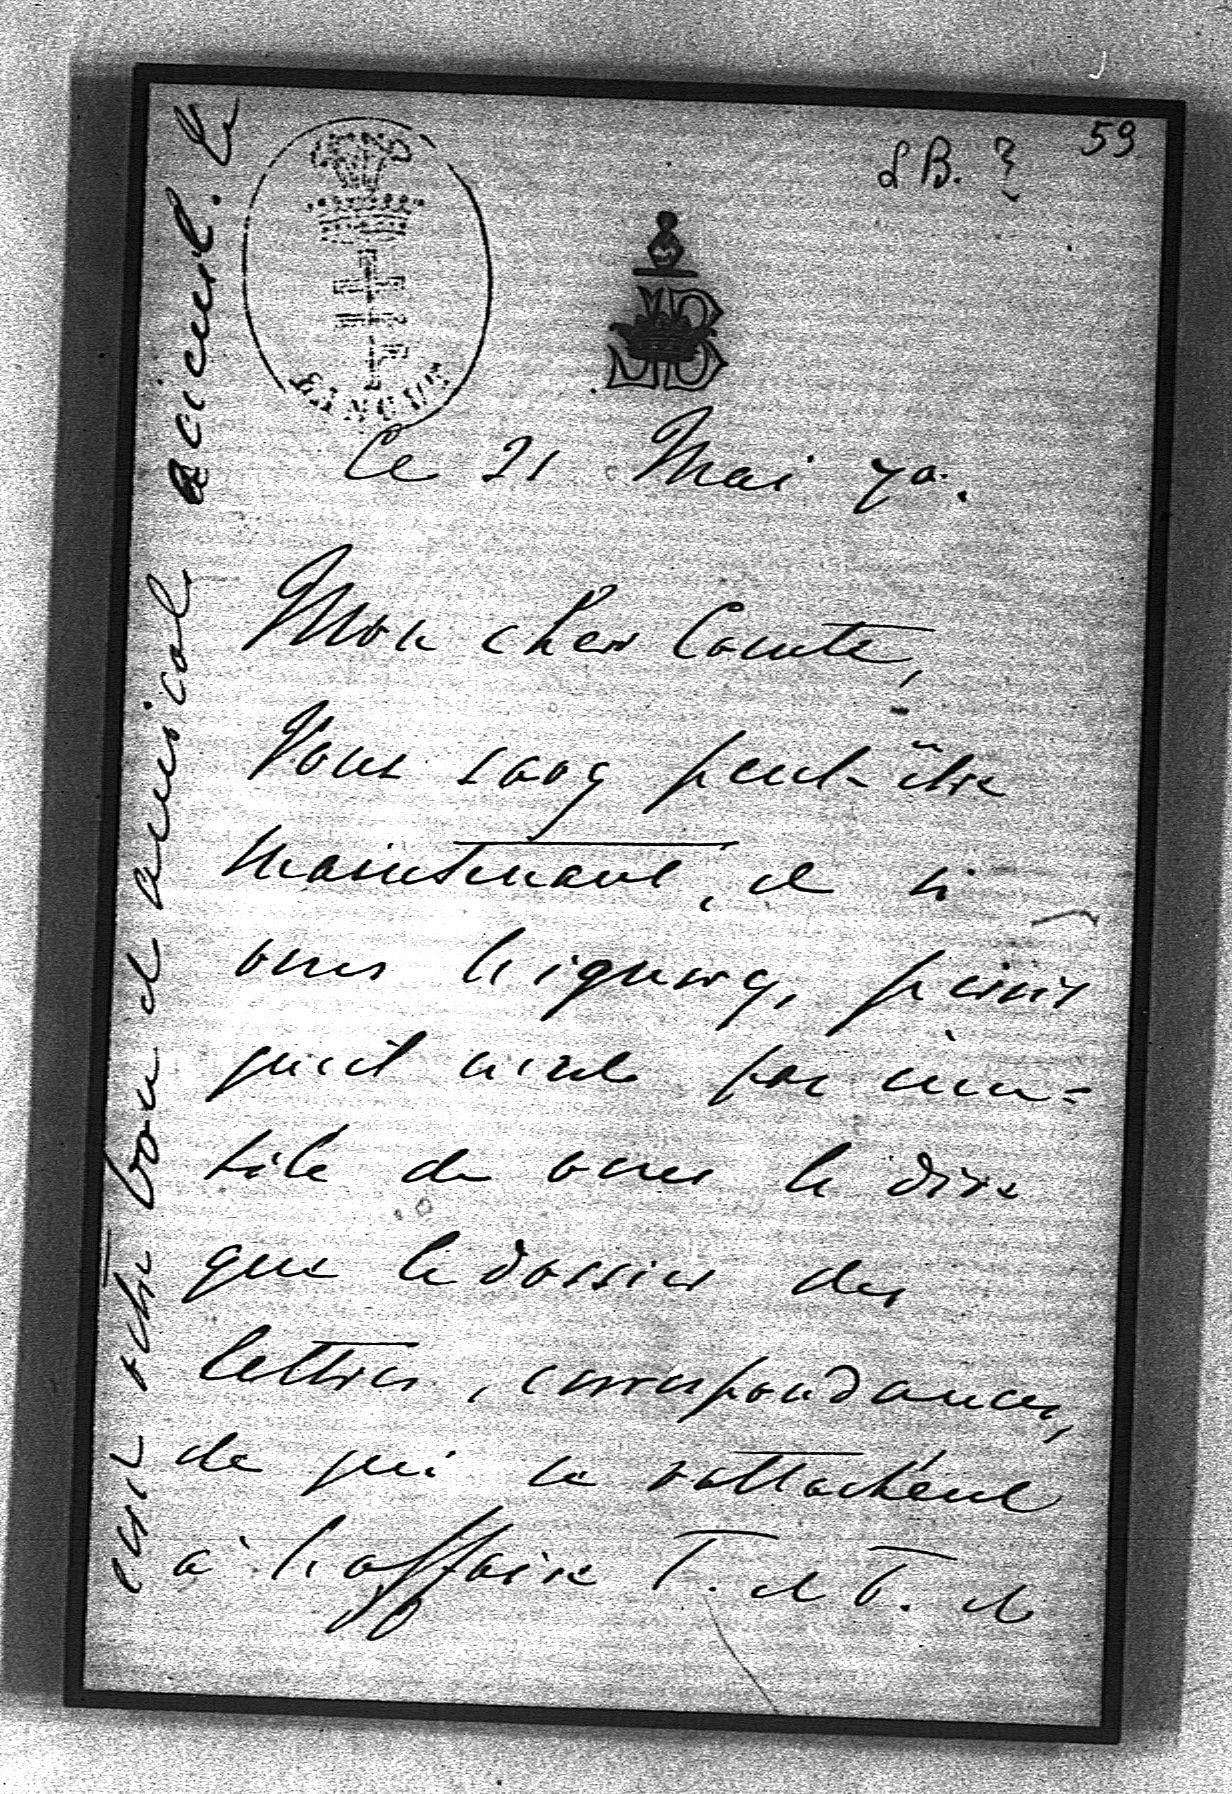 59
LB. ?
Ce 21 Mai 70.
Mon cher Comte,
Vous savez peut-être
maintenant, et si
vous l'ignorez, peut-être
qu'il n'est pas inu=
tile de vous le dire
que le dossier des
lettres, correspondances,
de qui se rattachent
à l'affaire T. et T. et
sur votre bon et amical accueil. Et